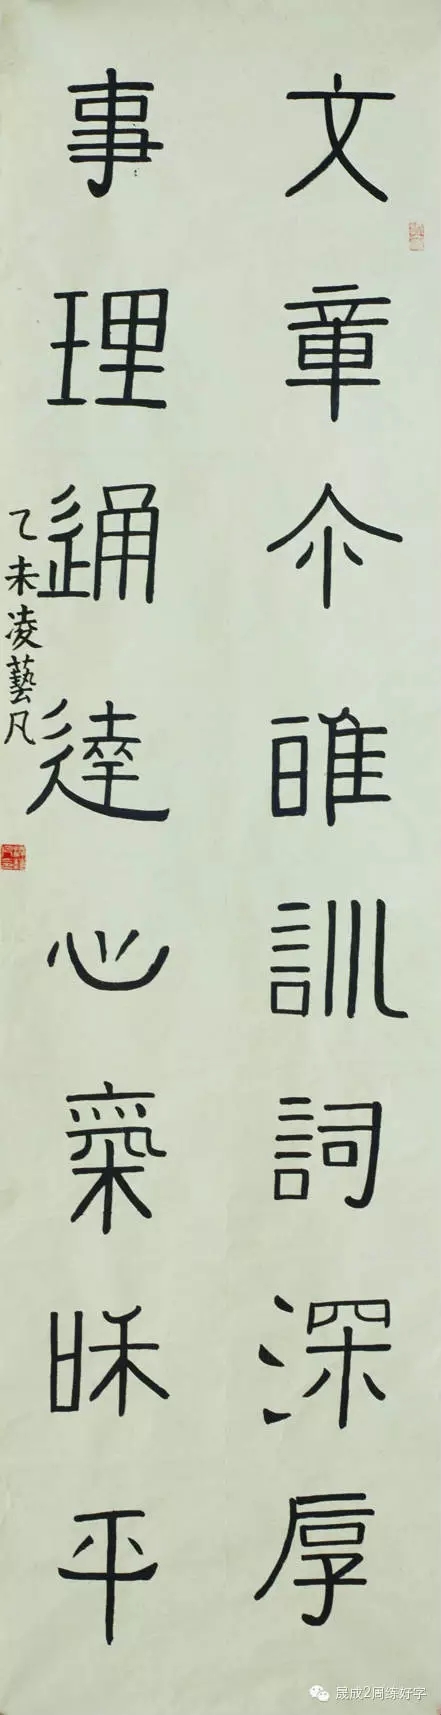 文章尒雅訓詞深厚
事理通達心氣咊平
乙未凌藝凡
晟成2周练好字